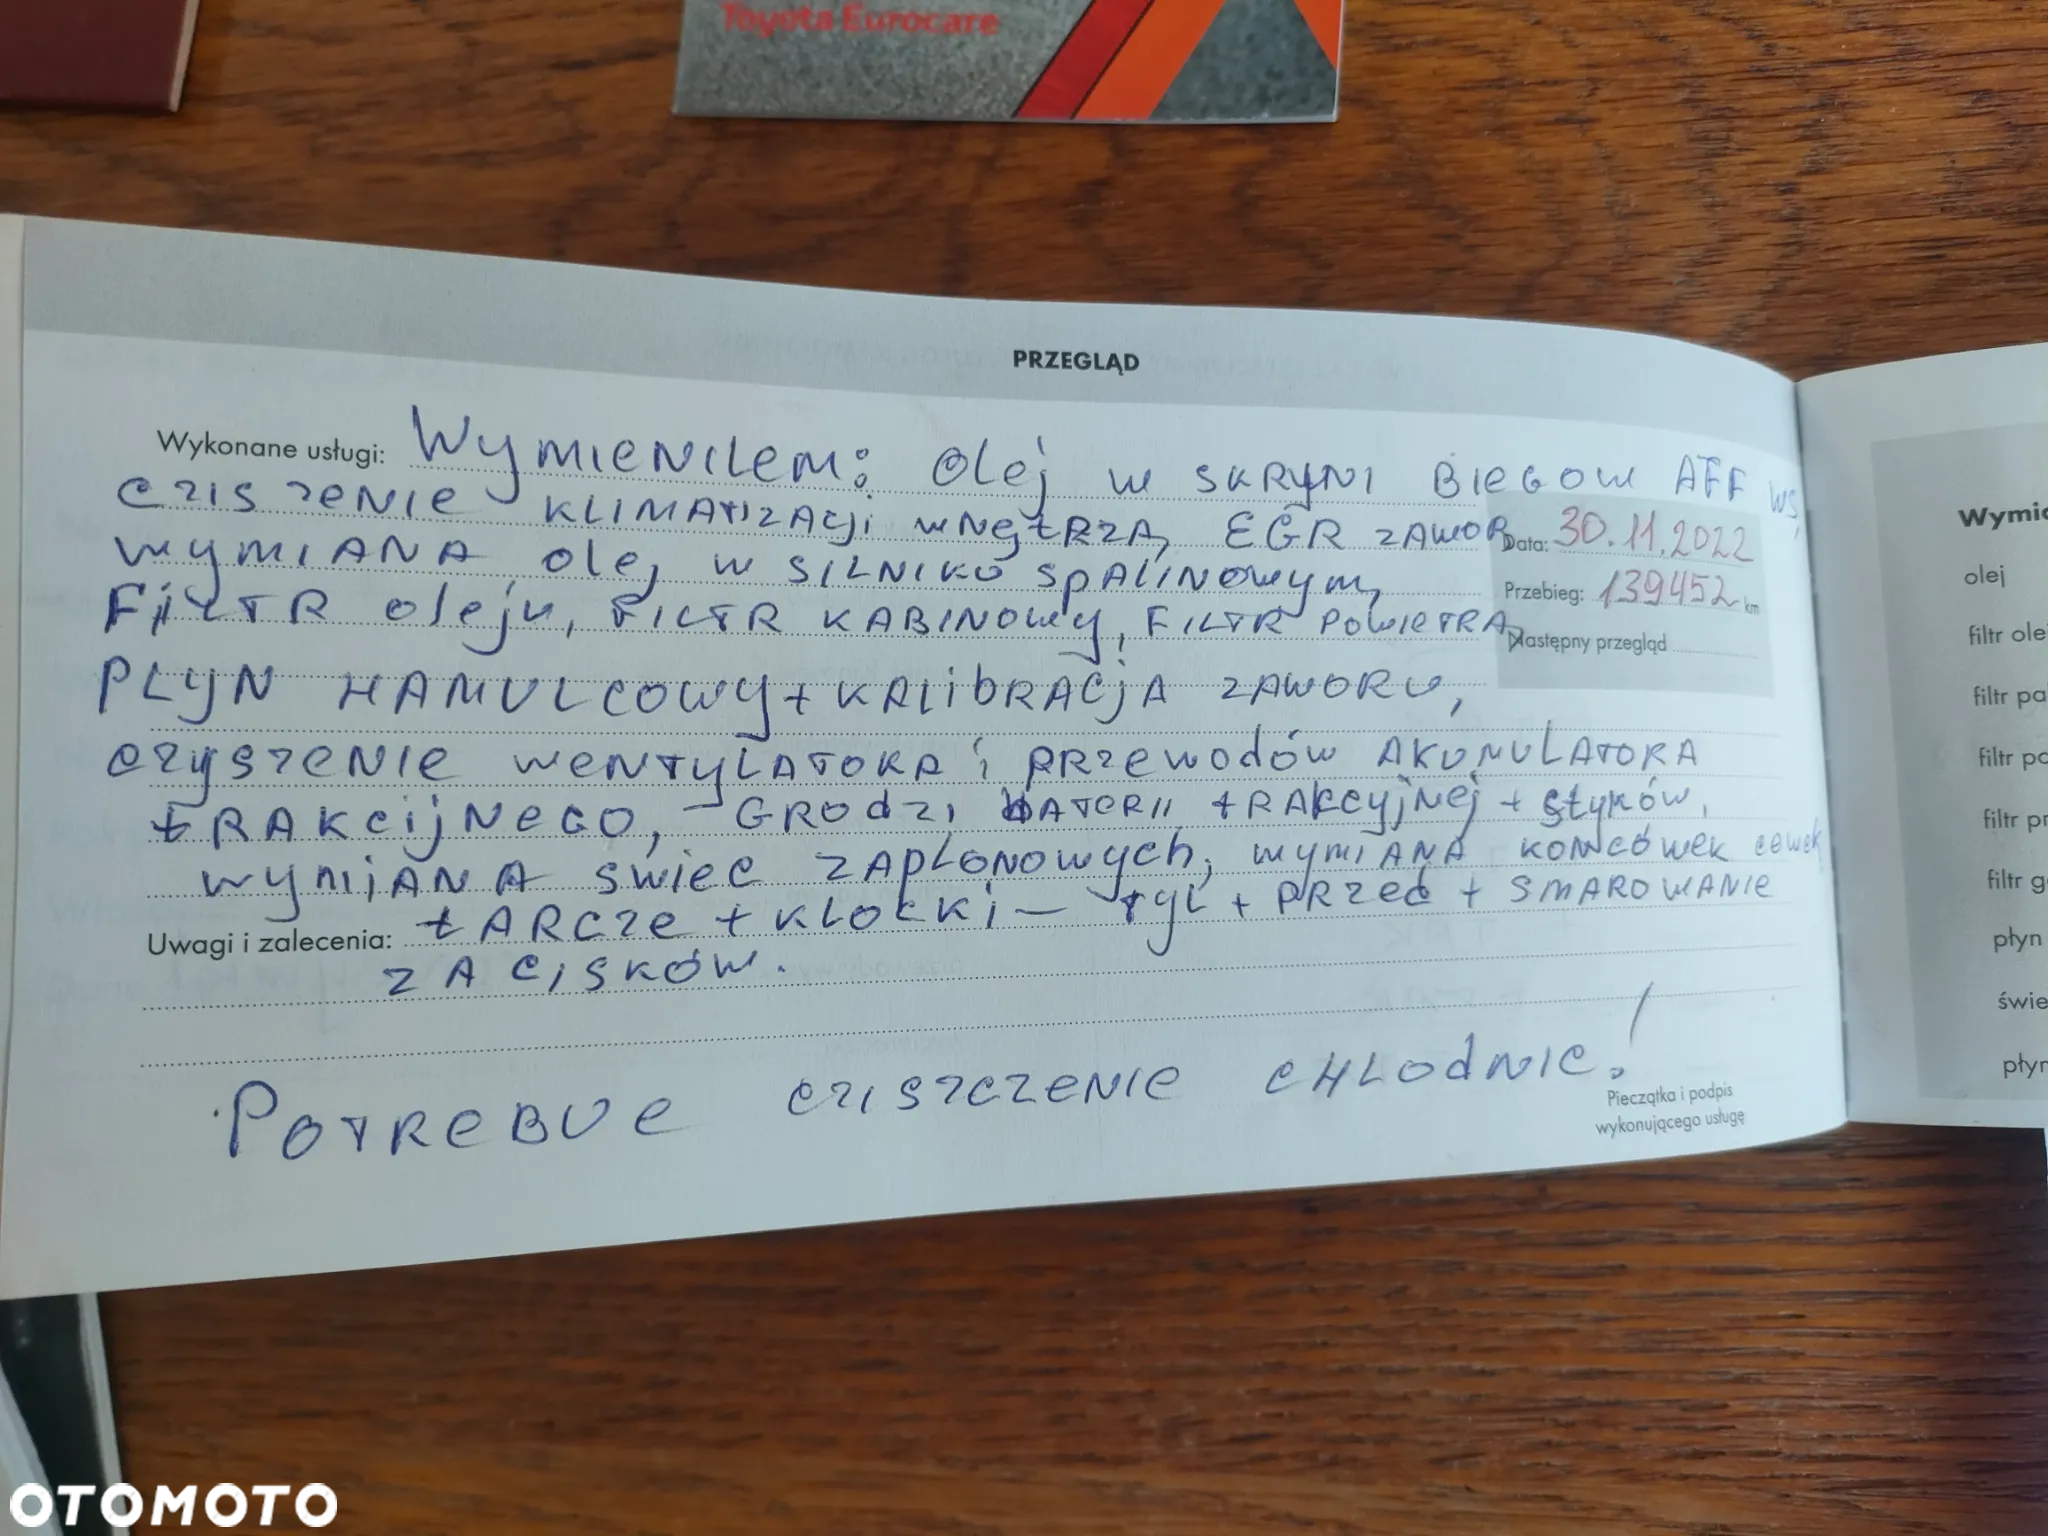 Toyota Eurocare
PRZEGLĄD
Wykonane usługi: WYMIENILEM: Olej w SKRYNI BIEGOW ATF WS,
CZISZENIE KLIMATIZACJI WNĘTRZA, EGR ZAWOR,
Data: 30.11.2022
WYMIANA olej w SILNIKO SPALINOWYM,
Przebieg: 139452 km
FILTR oleju, FILTR KABINOWY, FILTR POWIETRA,
Następny przegląd
PŁYN HAMULCOWY + KALIBRACJA ZAWORU,
CZYSZENIE WENTYLATORA i PRZEWODÓW AKUMULATORA
TRAKCIJNEGO, - GRODZI BATERII TRAKCYJNEJ + STYKÓW,
WYMIANA SWIEC ZAPLONOWYCH, WYMIANA KONCÓWEK CEWEK
Uwagi i zalecenia: TARCZE + KLOCKI - TYL + PRZED + SMAROWANIE
ZACISKÓW.
POTREBUE CZISZCZENIE CHLODNIC!
Pieczątka i podpis
wykonującego usługę
Wymie
olej
filtr ole
filtr pa
filtr po
filtr pr
filtr g
płyn
świe
płyn
OTOMOTO